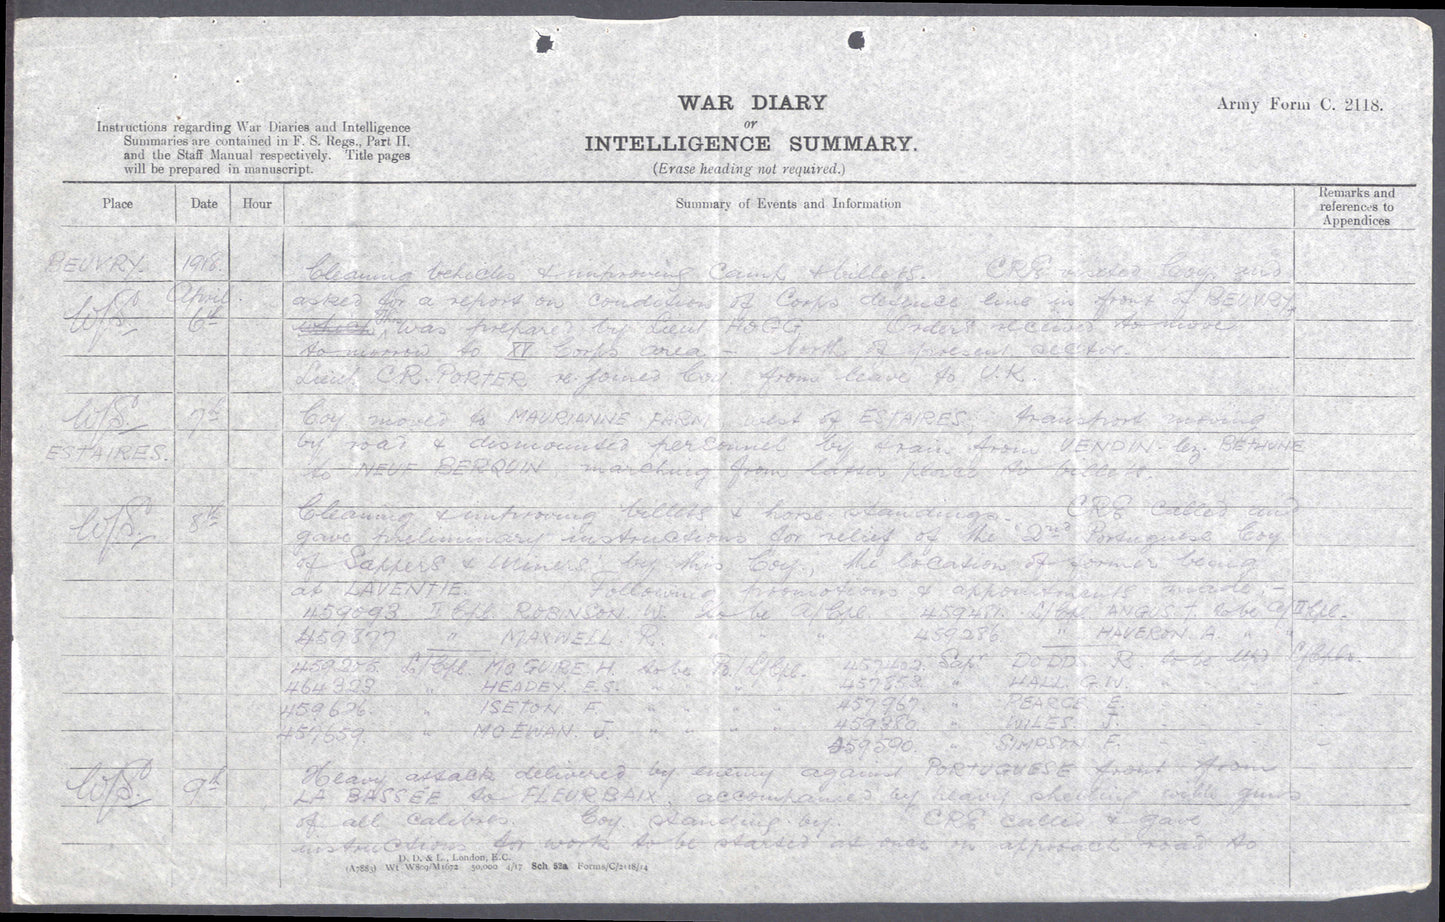 WAR DIARY
or
INTELLIGENCE SUMMARY.
(Erase heading not required.)
Army Form C. 2118.
Instructions regarding War Diaries and Intelligence
Summaries are contained in F. S. Regs., Part II.
and the Staff Manual respectively. Title pages
will be prepared in manuscript.
Place Date Hour Summary of Events and Information Remarks and references to Appendices
BEUVRY. 1918. Cleaning vehicles & improving camp & billets. CRE visited Coy. and
April asked for a report on condition of Corps defence line in front of BEUVRY,
6th which this was prepared by Lieut HOGG. Orders received to move
tomorrow to XV Corps area - North of present sector.
Lieut C.R. PORTER re-joined Coy from leave to U.K.
7th Coy moved to MAURIANNE FARM, west of ESTAIRES, transport moving
ESTAIRES. by road & dismounted personnel by train from VENDIN-lez-BETHUNE
to NEUF BERQUIN, marching from latter place to billets.
8th Cleaning & improving billets & horse standings. CRE called and
gave preliminary instructions for relief of the 2nd Portuguese Coy
of Sappers & Miners by this Coy., the location of former being
at LAVENTIE. Following promotions & appointments made:-
459093 II Cpl. ROBINSON W. to be A/Cpl. 459481. L/Cpl ANGUS T. to be A/II Cpl.
459877 " MAXWELL. R. " " " 459286 " HAVERON. A. " "
459205 L/Cpl. McGUIRE. H. to be P/L/Cpl. 457402 Sapr DODDS R to be L/Cpl.
464323 " HEADEY. E.S. " " " 457853 " HALL. G.W. " " "
459626. " ISETON. F. " " " 457967. " PEARCE E. " " "
457659. " McEWAN. J. " " " 459280 " WILES J. " " "
459590. " SIMPSON F. " " "
9th Heavy attack delivered by enemy against PORTUGUESE front from
LA BASSÉE to FLEURBAIX, accompanied by heavy shelling with guns
of all calibres. Coy. standing by. CRE called & gave
instructions for work to be started at once on approach road to
D. D. & L., London, E.C.
(A7883) Wt W809/M1672 50,000 4/17 Sch. 52a Forms/C/2118/14